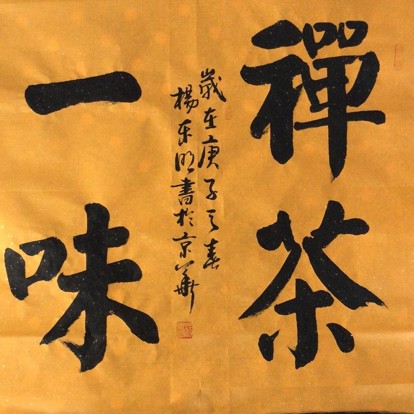 禪茶
一味
歲在庚子之春
楊明書於京華